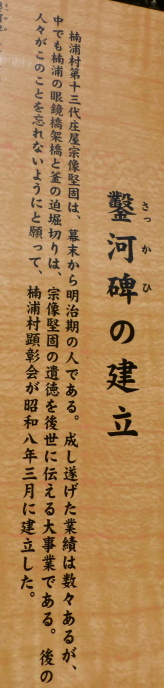 鑿河碑の建立
さっかひ
楠浦村第十三代庄屋宗像堅固は、幕末から明治期の人である。成し遂げた業績は数々あるが、
中でも楠浦の眼鏡橋架橋と釜の迫堀切りは、宗像堅固の遺徳を後世に伝える大事業である。後の
人々がこのことを忘れないようにと願って、楠浦村顕彰会が昭和八年三月に建立した。